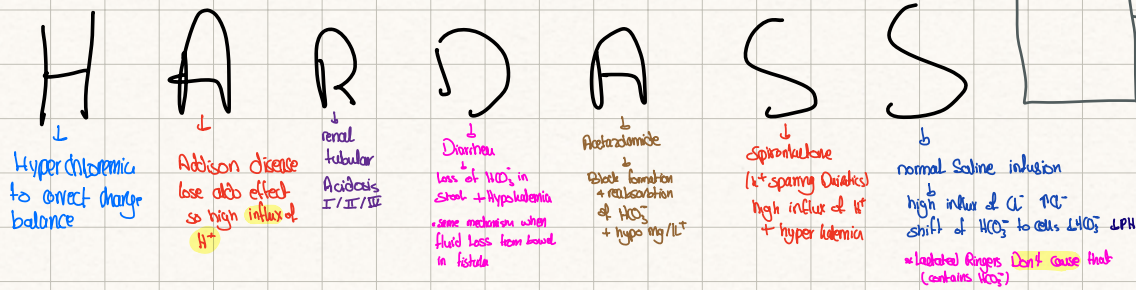 H A R D A S S
Hyperchloremia
to correct charge
balance
Addison disease
lose aldo effect
so high influx of
H⁺
renal
tubular
Acidosis
I / II / IV
Diarrhea
Loss of HCO₃⁻ in
stool + Hypokalemia
• same mechanism when
fluid Loss from bowel
in fistula
Acetazolamide
Block formation
+ reabsorbtion
of HCO₃⁻
+ hypo mg/K⁺
Spironolactone
(K⁺ sparing Duiratics)
high influx of H⁺
+ hyperkalemia
normal Saline infusion
high influx of Cl⁻ ↑Cl⁻
shift of HCO₃⁻ to cells ↓HCO₃⁻ ↓PH
* Lactated Ringers Don't cause that
(contains HCO₃⁻)